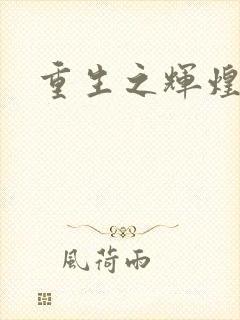 重生之輝煌
風荷雨